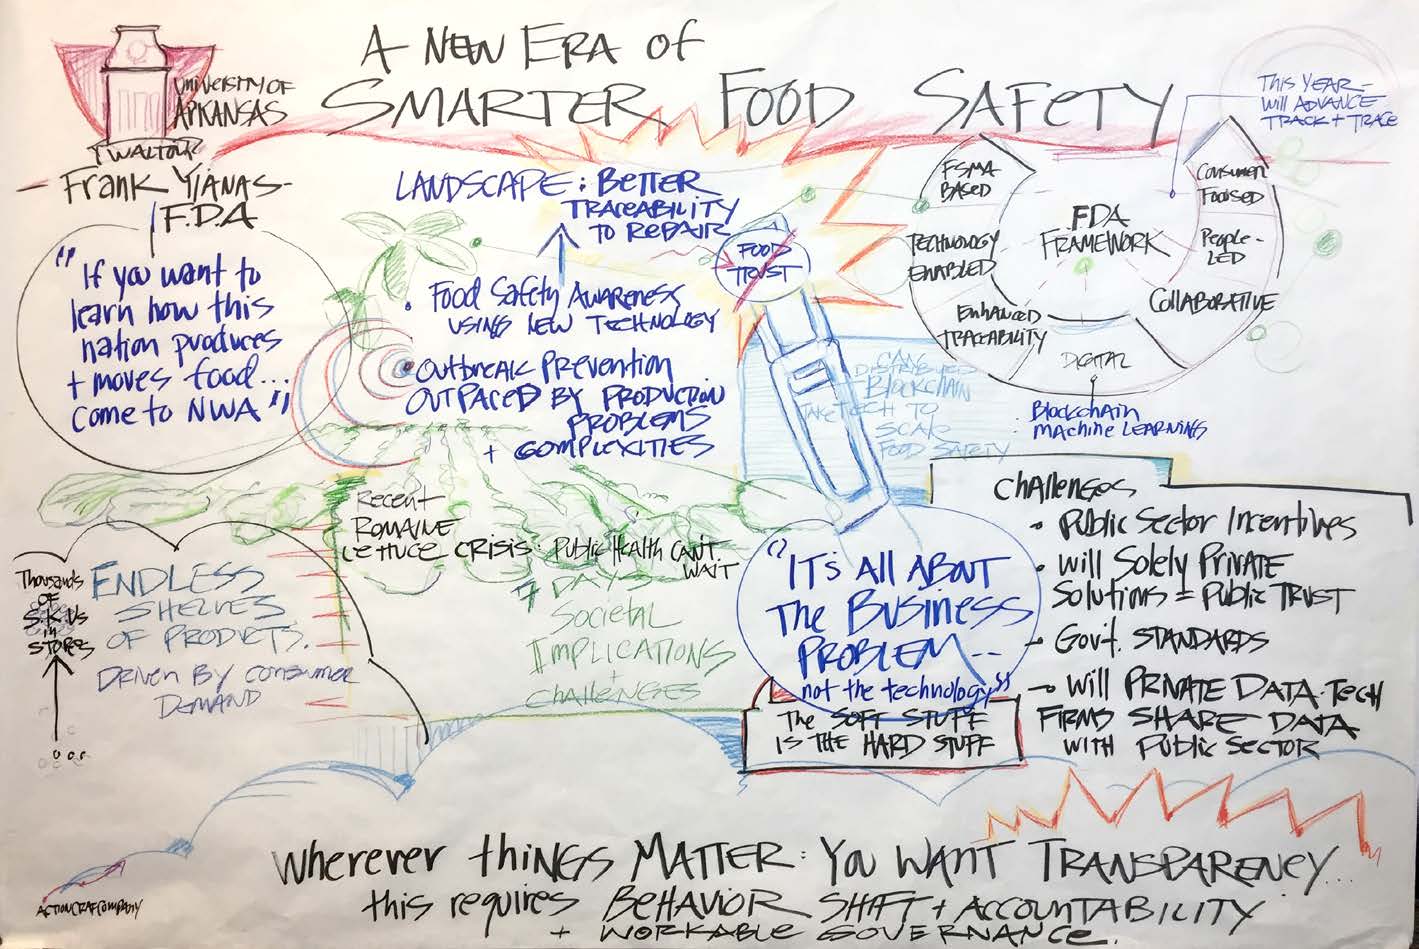 A NEW ERA OF
SMARTER FOOD SAFETY
UNIVERSITY OF
ARKANSAS
Frank YIANAS-
F.D.A
"If you want to
learn how this
nation produces
+ moves food...
come to NWA"
LANDSCAPE: BETTER
TRACEABILITY
TO REPAIR
FOOD
TRUST
• Food Safety AWARENESS
USING NEW TECHNOLOGY
• Outbreak Prevention
OUTPACED BY PRODUCTION
PROBLEMS
+ COMPLEXITIES
This YEAR-
Will ADVANCE
TRACK + TRACE
FSMA
BASED
TECHNOLOGY
ENABLED
ENHANCED
TRACEABILITY
DIGITAL
COLLABORATIVE
People-
LED
Consumer
Focused
FDA
FRAMEWORK
Blockchain
Machine LEARNING
CANS
DISTRIBUTED
BLOCKCHAIN
TAKE TECH TO
SCALE
FOOD SAFETY
Recent
ROMAINE
LETTUCE CRISIS: Public Health CAN'T
WAIT
7 DAYS
Societal
IMPLICATIONS
+
CHALLENGES
Thousands
OF
S.K.U.s
in
STORES
ENDLESS
SHELVES
OF PRODUCTS.
DRIVEN BY CONSUMER
DEMAND
"IT'S ALL ABOUT
The BUSINESS
PROBLEM...
not the technology"
The SOFT STUFF
IS THE HARD STUFF
Challenges
• Public Sector Incentives
• Will Solely Private
Solutions = Public TRUST
- Gov't. STANDARDS
- Will PRIVATE DATA-TECH
FIRMS SHARE DATA
WITH Public SECTOR
Wherever things MATTER: YOU WANT TRANSPARENCY...
this requires BEHAVIOR SHIFT + ACCOUNTABILITY
+ WORKABLE GOVERNANCE.